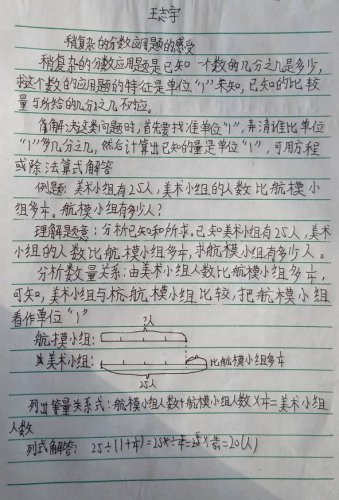 王志宇
稍复杂的分数应用题的感受
稍复杂的分数应用题是已知一个数的几分之几是多少,
求这个数的应用题的特征是单位"1"未知,已知的比较
量与所给的几分之几不对应。
解决这类问题时,首先要找准单位"1",弄清谁比单位
"1"多几分之几,然后计算出已知的量是单位"1",可用方程
或除法算式解答
例题:美术小组有25人,美术小组的人数比航模小
组多1/4。航模小组有多少人?
理解题意:分析已知和所求。已知美术小组有25人,美术
小组的人数比航模小组多1/4,求航模小组有多少人。
分析数量关系:由美术小组人数比航模小组多1/4,
可知,美术小组与航模小组比较,把航模小组
看作单位"1"
?人
航模小组:
美术小组: 比航模小组多1/4
25人
列出等量关系式:航模小组人数+航模小组人数×1/4=美术小组
人数
列式解答: 25÷(1+1/4)=25÷5/4=25×4/5=20(人)